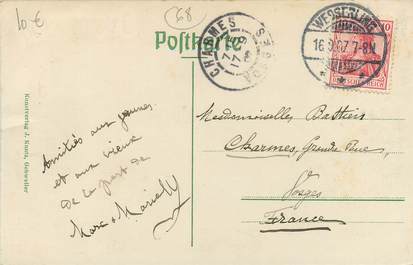 10 €
68
Postkarte
CHARMES
VOSGES
WESSERLING
7-8N
10
DEUTSCHES REICH
Kunstverlag J. Rueth, Gebweiler
Amitiés aux jeunes
et aux vieux
de la part de
Marc &
Mesdemoiselles Bastien
Charmes, Grande Rue,
Vosges
France